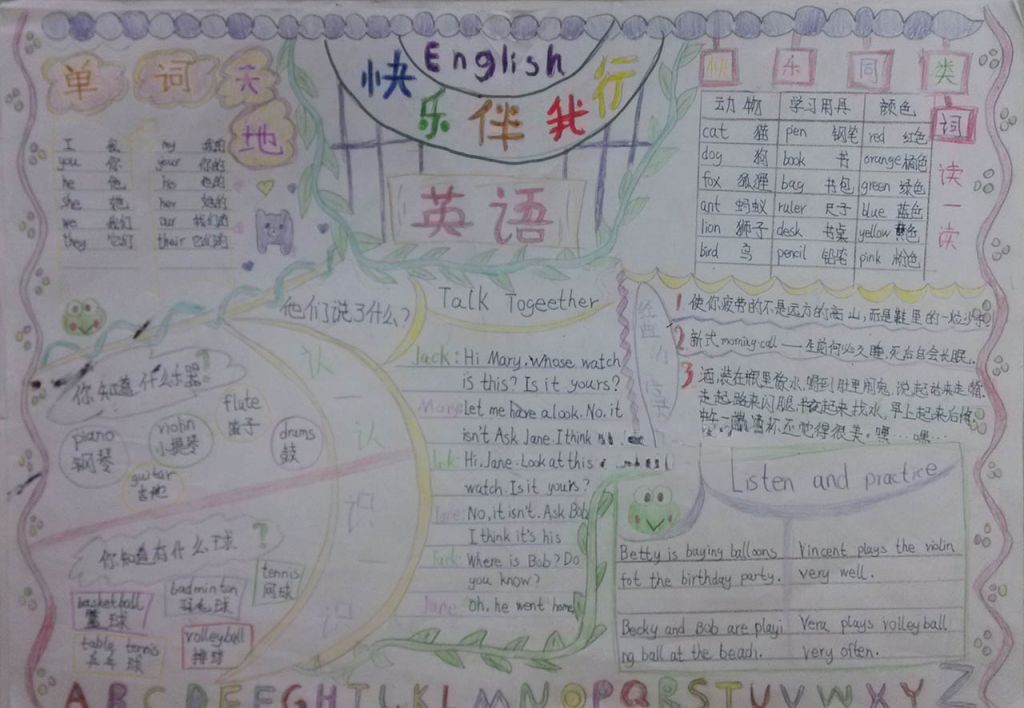 English
快乐伴我行
英语
单词天地
I 我 my 我的
you 你 your 你的
he 他 his 他的
she 她 her 她的
we 我们 our 我们的
they 它们 their 它们的
快乐同类词
读一读
动物 学习用具 颜色
cat 猫 pen 钢笔 red 红色
dog 狗 book 书 orange 橘色
fox 狐狸 bag 书包 green 绿色
ant 蚂蚁 ruler 尺子 blue 蓝色
lion 狮子 desk 书桌 yellow 黄色
bird 鸟 pencil 铅笔 pink 粉色
他们说了什么?
Talk Togeether
Jack: Hi Mary. whose watch
is this? Is it yours?
Mary: Let me have a look. No, it
isn't Ask Jane. I think
Jack: Hi, Jane. Look at this
watch. Is it yours?
Jane: No, it isn't. Ask Bob
I think it's his
Jack: Where is Bob? Do
you know?
Jane: Oh, he went home
认一认
识一识
你知道什么乐器?
piano 钢琴
violin 小提琴
flute 笛子
drums 鼓
guitar 吉他
你知道有什么球?
basketball 篮球
badminton 羽毛球
tennis 网球
table tennis 乒乓球
volleyball 排球
1 使你疲劳的不是远方的高山,而是鞋里的一粒沙
2 新式morning call — 生前何必久睡,死后自会长眠..
3 酒,装在瓶里像水,喝到肚里闹鬼,说起话来走嘴
走起路来闪腿,半夜起来找水,早上起来后悔
中午一端酒杯还吃得很美。嘿...嘿...
Listen and practice
Betty is buying balloons
fot the birthday party.
Vincent plays the violin
very well.
Becky and Bob are playi
ng ball at the beach.
Vera plays volleyball
very often.
A B C D E F G H I J K L M N O P Q R S T U V W X Y Z